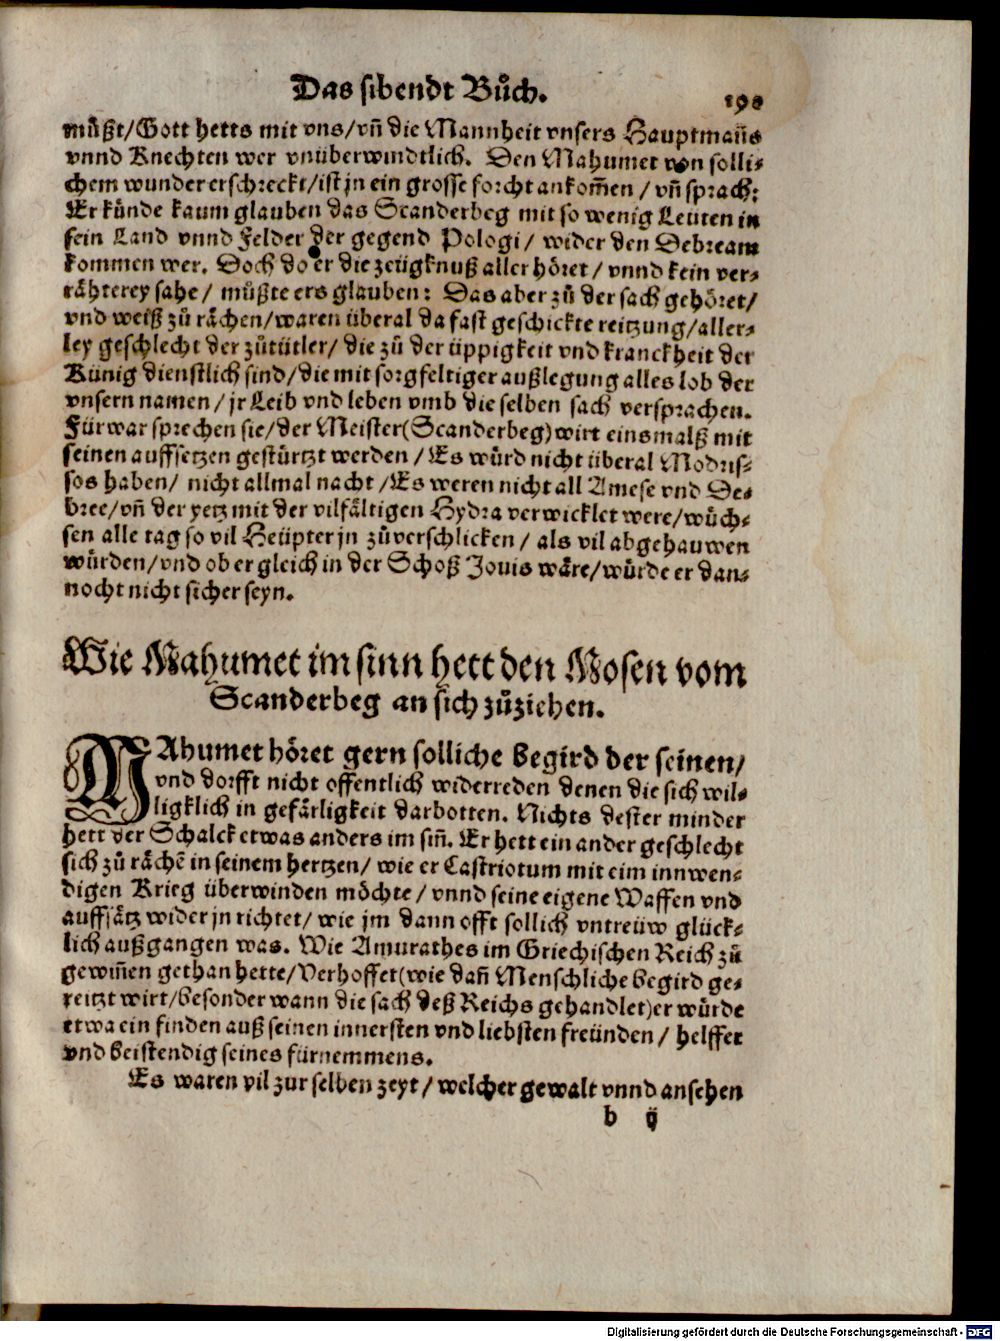 Das sibendt Bůch.
190
můßt/Gott hetts mit vns/vñ die Mannheit vnsers Hauptmañs
vnnd Knechten wer vnüberwindtlich. Den Mahumet von solli-
chem wunder erschreckt/ist jn ein grosse forcht ankom̃en / vñ sprach:
Er künde kaum glauben das Scanderbeg mit so wenig Leuten in
sein Land vnnd Felder der gegend Pologi/ wider den Debream
kommen wer. Doch do er die zeügknuß aller höret / vnnd kein ver-
rähterey sahe / müßte ers glauben: Das aber zů der sach gehöret/
vnd weiß zů rächen/waren überal da fast geschickte reitzung/aller-
ley geschlecht der zůtütler/ die zů der üppigkeit vnd kranckheit der
Künig dienstlich sind/die mit sorgfeltiger außlegung alles lob der
vnsern namen / jr Leib vnd leben vmb die selben sach versprachen.
Fürwar sprechen sie/der Meister(Scanderbeg)wirt einsmalß mit
seinen auffsetzen gestürtzt werden / Es würd nicht überal Modris-
sos haben/ nicht allmal nacht /Es weren nicht all Amese vnd De-
bree/vñ der yetz mit der vilfältigen Hydra verwicklet were/wůch-
sen alle tag so vil Heüpter jn zůverschlicken / als vil abgehauwen
würden/vnd ob er gleich in der Schoß Jouis wäre/würde er dan-
nocht nicht sicher seyn.
Wie Mahumet im sinn hett den Mosen vom
Scanderbeg an sich zůziehen.
MAhumet höret gern solliche begird der seinen/
vnd dorfft nicht offentlich widerreden denen die sich wil-
ligklich in gefärligkeit darbotten. Nichts dester minder
hett der Schalck etwas anders im siñ. Er hett ein ander geschlecht
sich zů rächẽ in seinem hertzen/ wie er Castriotum mit eim innwen-
digen Krieg überwinden möchte / vnnd seine eigene Waffen vnd
auffsätz wider jn richtet/ wie jm dann offt sollich vntreüw glück-
lich außgangen was. Wie Amurathes im Griechischen Reich zů
gewiñen gethan hette/Verhoffet(wie dañ Menschliche begird ge-
reitzt wirt/besonder wann die sach deß Reichs gehandlet)er würde
etwa ein finden auß seinen innersten vnd liebsten freünden / helffer
vnd beistendig seines fürnemmens.
Es waren vil zur selben zeyt / welcher gewalt vnnd ansehen
b ij
Digitalisierung gefördert durch die Deutsche Forschungsgemeinschaft - DFG